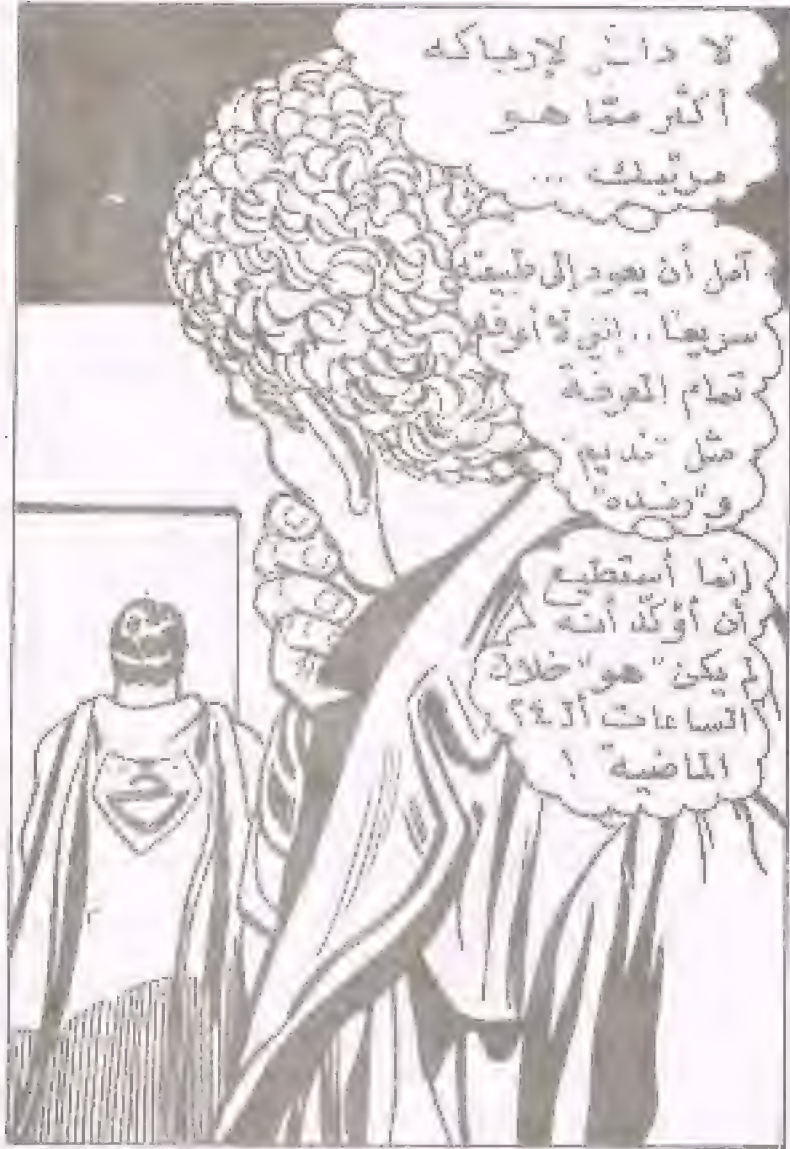 لا داعي لإرباكه
أكثر ممّا هو
مرتبك ...
آمل أن يعود إلى طبيعته
سريعًا.. إنني لا أعرفه
تمام المعرفة
مثل "نديم"
و"رندة"
إنما أستطيع
أن أؤكّد أنه
لم يكن "هو" خلال
الساعات الـ ٢٤
الماضية !